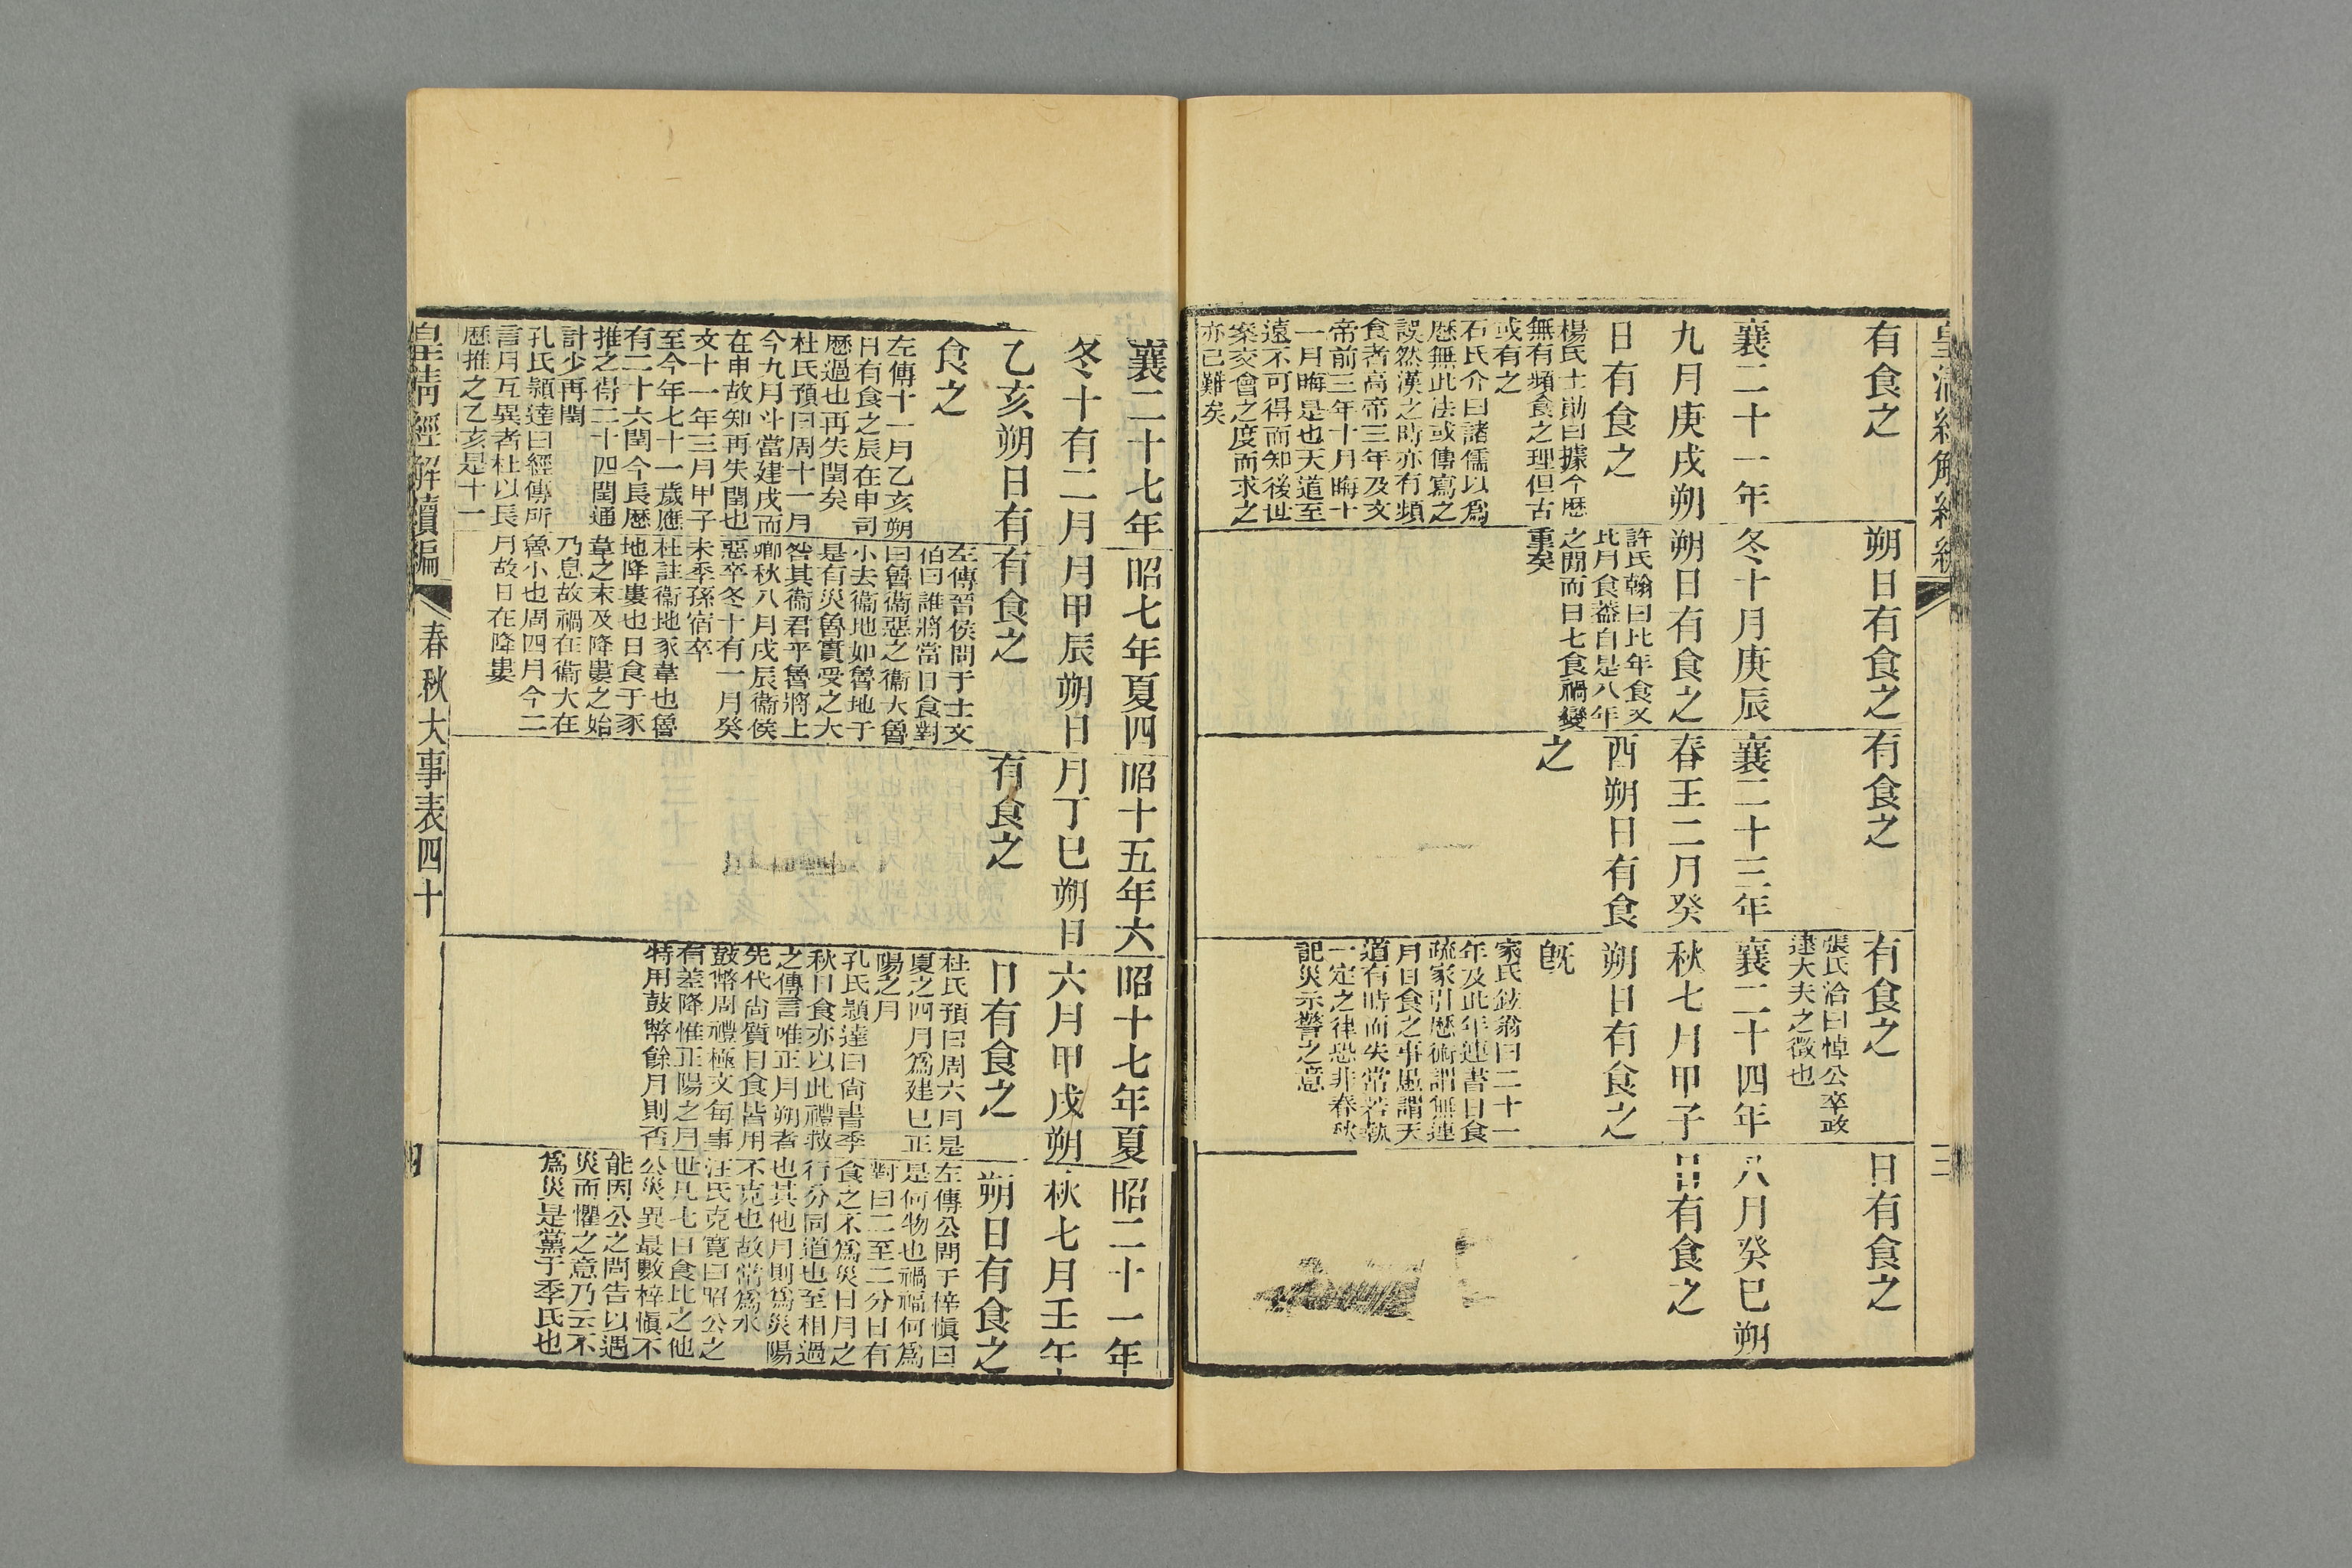 皇清經解續編
三
有食之
襄二十一年
九月庚戌朔
日有食之
楊氏士勛曰據今歷
無有頻食之理但古
或有之
石氏介曰諸儒以爲
歷無此法或傳寫之
誤然漢之時亦有頻
食者高帝三年及文
帝前三年十月晦十
一月晦是也天道至
遠不可得而知後世
案交會之度而求之
亦已難矣
朔日有食之
冬十月庚辰
朔日有食之
許氏翰曰比年食又
比月食葢自是八年
之閒而日七食禍變
重矣
有食之
襄二十三年
春王二月癸
酉朔日有食
之
有食之
張氏洽曰悼公卒政
逮大夫之徵也
襄二十四年
秋七月甲子
朔日有食之
旣
家氏鉉翁曰二十一
年及此年連書日食
疏家引歷術謂無連
月日食之事愚謂天
道有時而失常若執
一定之律恐非春秋
記災示警之意
日有食之
八月癸巳朔
日有食之
襄二十七年
冬十有二月
乙亥朔日有
食之
左傳十一月乙亥朔
日有食之辰在申司
歷過也再失閏矣
杜氏預曰周十一月
今九月斗當建戌而
在申故知再失閏也
文十一年三月甲子
至今年七十一歲應
有二十六閏今長歷
推之得二十四閏通
計少再閏
孔氏穎達曰經傳所
言月互異者杜以長
歷推之乙亥是十一
昭七年夏四
月甲辰朔日
有食之
左傳晉侯問于士文
伯曰誰將當日食對
曰魯衞惡之衞大魯
小去衞地如魯地于
是有災魯實受之大
咎其衞君乎魯將上
卿秋八月戌辰衞侯
惡卒冬十有一月癸
未季孫宿卒
杜註衞地豕韋也魯
地降婁也日食于豕
韋之末及降婁之始
乃息故禍在衞大在
魯小也周四月今二
月故日在降婁
昭十五年六
月丁巳朔日
有食之
昭十七年夏
六月甲戌朔
日有食之
杜氏預曰周六月是
夏之四月爲建巳正
陽之月
孔氏穎達曰尙書季
秋日食亦以此禮救
之傳言唯正月朔者
先代尙質日食皆用
鼓幣周禮極文每事
有差降惟正陽之月
特用鼓幣餘月則否
昭二十一年
秋七月壬午
朔日有食之
左傳公問于梓愼曰
是何物也禍福何爲
對曰二至二分日有
食之不爲災日月之
行分同道也至相過
也其他月則爲災陽
不克也故常爲水
汪氏克寬曰昭公之
世凡七日食比之他
公災異最數梓愼不
能因公之問告以遇
災而懼之意乃云不
爲災是黨于季氏也
皇清經解續編
春秋大事表四十
四